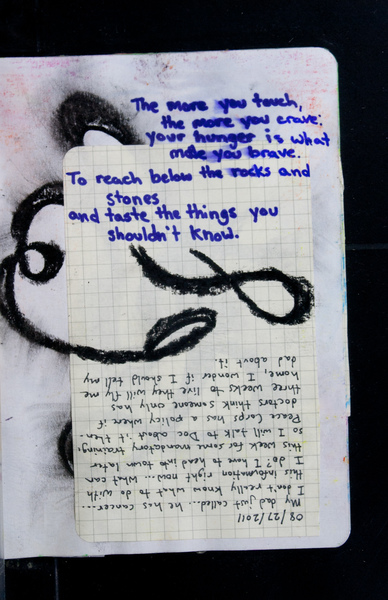 The more you touch,
the more you crave;
your hunger is what
made you brave.
To reach below the rocks and
stones
and taste the things you
shouldn't know.
08/27/2011
My dad just called... he has cancer...
I don't really know what to do with
this information right now... what can
I do? I have to head into town later
this week for some mandatory training,
so I will talk to Doc about it then.
Peace Corps has a policy where if
doctors think someone only has
three weeks to live they will fly me
home. I wonder if I should tell my
dad about it.